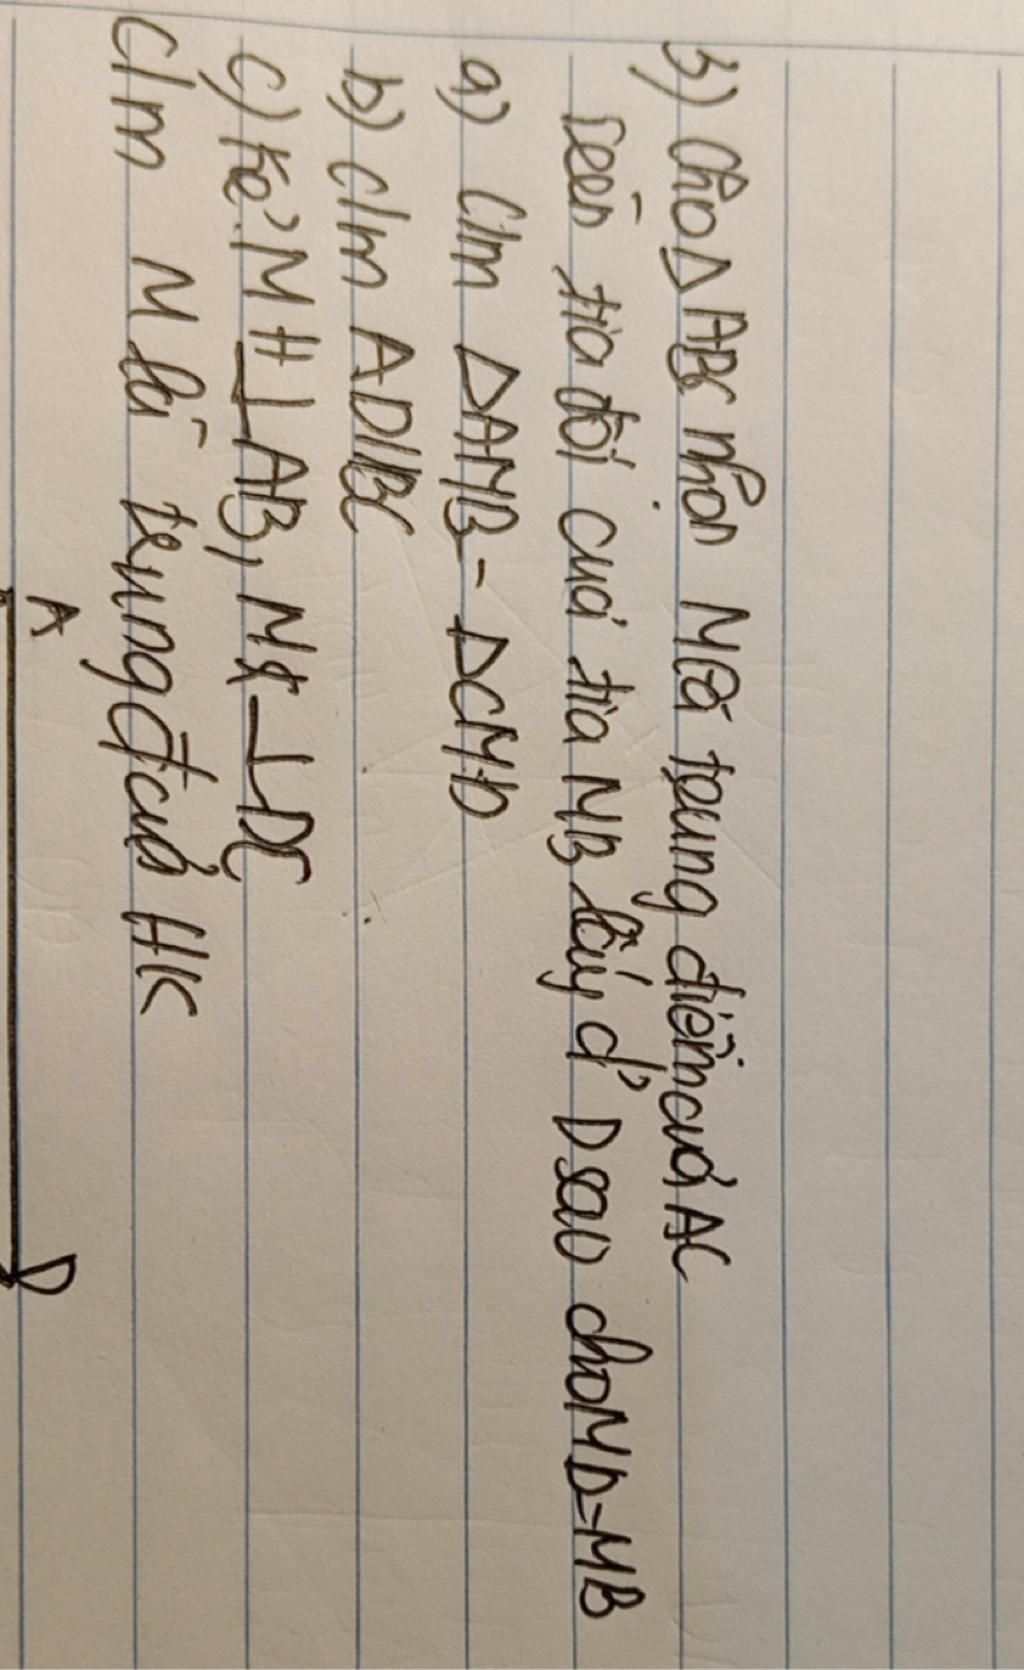 3) Cho Δ ABC nhọn M là trung điểm của AC
trên tia đối của tia MB lấy đ' D sao cho MD=MB
a) C/m ΔAMB = ΔCMD
b) c/m AD//BC
c) Kẻ MH ⊥ AB, MK ⊥ DC
C/m M là trung đ' của HK
A
D